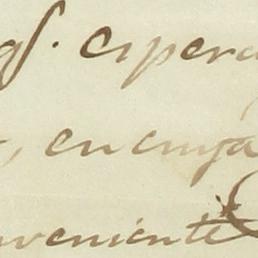 qſ. espera
, en cuya
nveniente